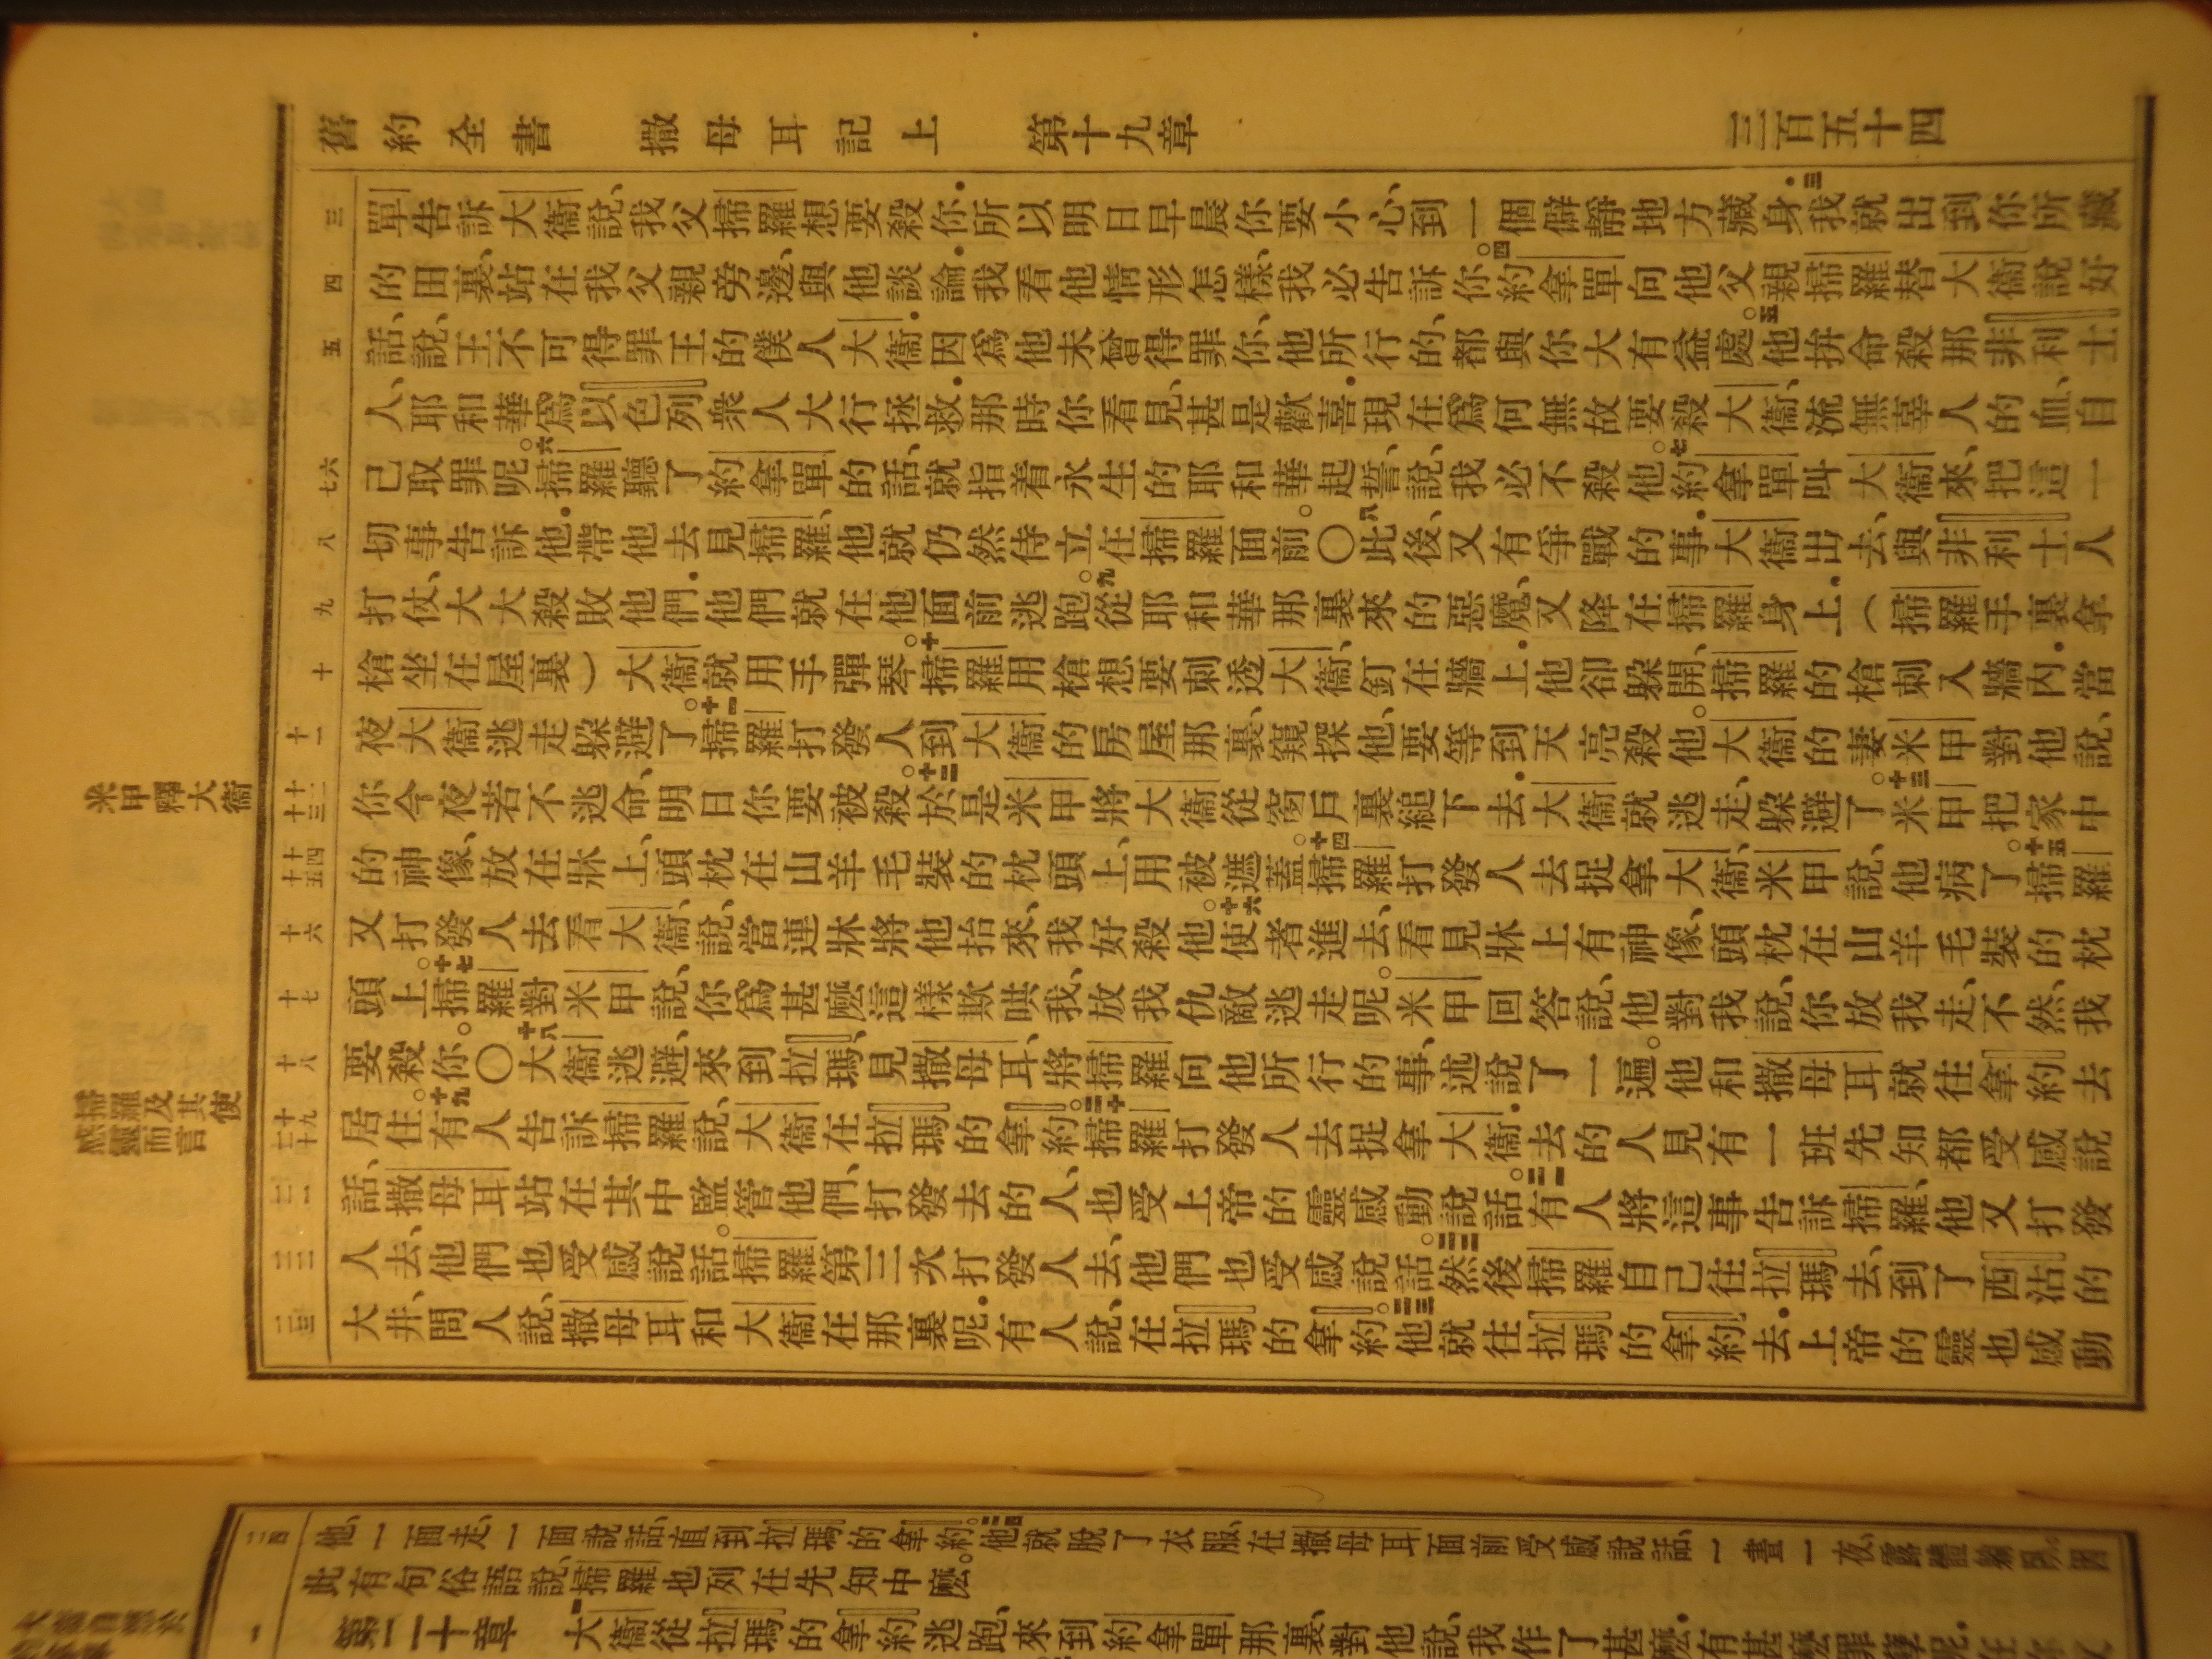 舊約全書 撒母耳記上 第十九章 三百五十四
三 單告訴大衞說、我父掃羅想要殺你.所以明日早晨你要小心、到一個僻靜地方藏身.三我就出到你所藏
四 的田裏、站在我父親旁邊、與他談論.我看他情形怎樣、我必告訴你。四約拿單向他父親掃羅替大衞說好
五 話、說、王不可得罪王的僕人大衞.因爲他未曾得罪你、他所行的、都與你大有益處。五他拚命殺那非利士
人、耶和華爲以色列衆人大行拯救.那時你看見、甚是歡喜.現在爲何無故要殺大衞、流無辜人的血、自
六 七 己取罪呢。六掃羅聽了約拿單的話、就指着永生的耶和華起誓、說、我必不殺他。七約拿單叫大衞來、把這一
八 切事告訴他.帶他去見掃羅、他就仍然侍立在掃羅面前。〇八此後、又有爭戰的事.大衞出去、與非利士人
九 打仗、大大殺敗他們.他們就在他面前逃跑。九從耶和華那裏來的惡魔、又降在掃羅身上.(掃羅手裏拿
十 槍坐在屋裏)大衞就用手彈琴。十掃羅用槍想要刺透大衞、釘在牆上.他卻躲開、掃羅的槍刺入牆內.當
十一 夜大衞逃走躲避了。十一掃羅打發人到大衞的房屋那裏、窺探他、要等到天亮殺他。大衞的妻米甲對他說、
十二 十三 你今夜若不逃命、明日你要被殺。十二於是米甲將大衞從窗戶裏縋下去.大衞就逃走、躲避了。十三米甲把家中
十四 十五 的神像、放在牀上、頭枕在山羊毛裝的枕頭上、用被遮蓋。十四掃羅打發人去捉拿大衞、米甲說、他病了。十五掃羅
十六 又打發人去看大衞、說、當連牀將他抬來、我好殺他。十六使者進去、看見牀上有神像、頭枕在山羊毛裝的枕
十七 頭上。十七掃羅對米甲說、你爲甚麽這樣欺哄我、放我仇敵逃走呢。米甲回答說、他對我說、你放我走、不然、我
十八 要殺你。〇十八大衞逃避、來到拉瑪、見撒母耳、將掃羅向他所行的事、述說了一遍。他和撒母耳就往拿約去
十九 二十 居住。十九有人告訴掃羅說、大衞在拉瑪的拿約。二十掃羅打發人去捉拿大衞.去的人見有一班先知都受感說
二一 話、撒母耳站在其中監管他們、打發去的人、也受上帝的靈感動說話。二一有人將這事告訴掃羅、他又打發
二二 人去、他們也受感說話。掃羅第三次打發人去、他們也受感說話。二二然後掃羅自己往拉瑪去、到了西沽的
二三 大井、問人說、撒母耳和大衞在那裏呢.有人說、在拉瑪的拿約。二三他就往拉瑪的拿約去.上帝的靈也感動
米甲釋大衞
掃羅及其使感靈而言
二四 他、一面走、一面說話、直到拉瑪的拿約。二四他就脫了衣服、在撒母耳面前受感說話、一晝一夜、露體臥因
此有句俗語說、掃羅也列在先知中麽。
一 第二十章 一大衞從拉瑪的拿約逃跑、來到約拿單那裏、對他說、我作了甚麽.有甚麽罪孽呢.